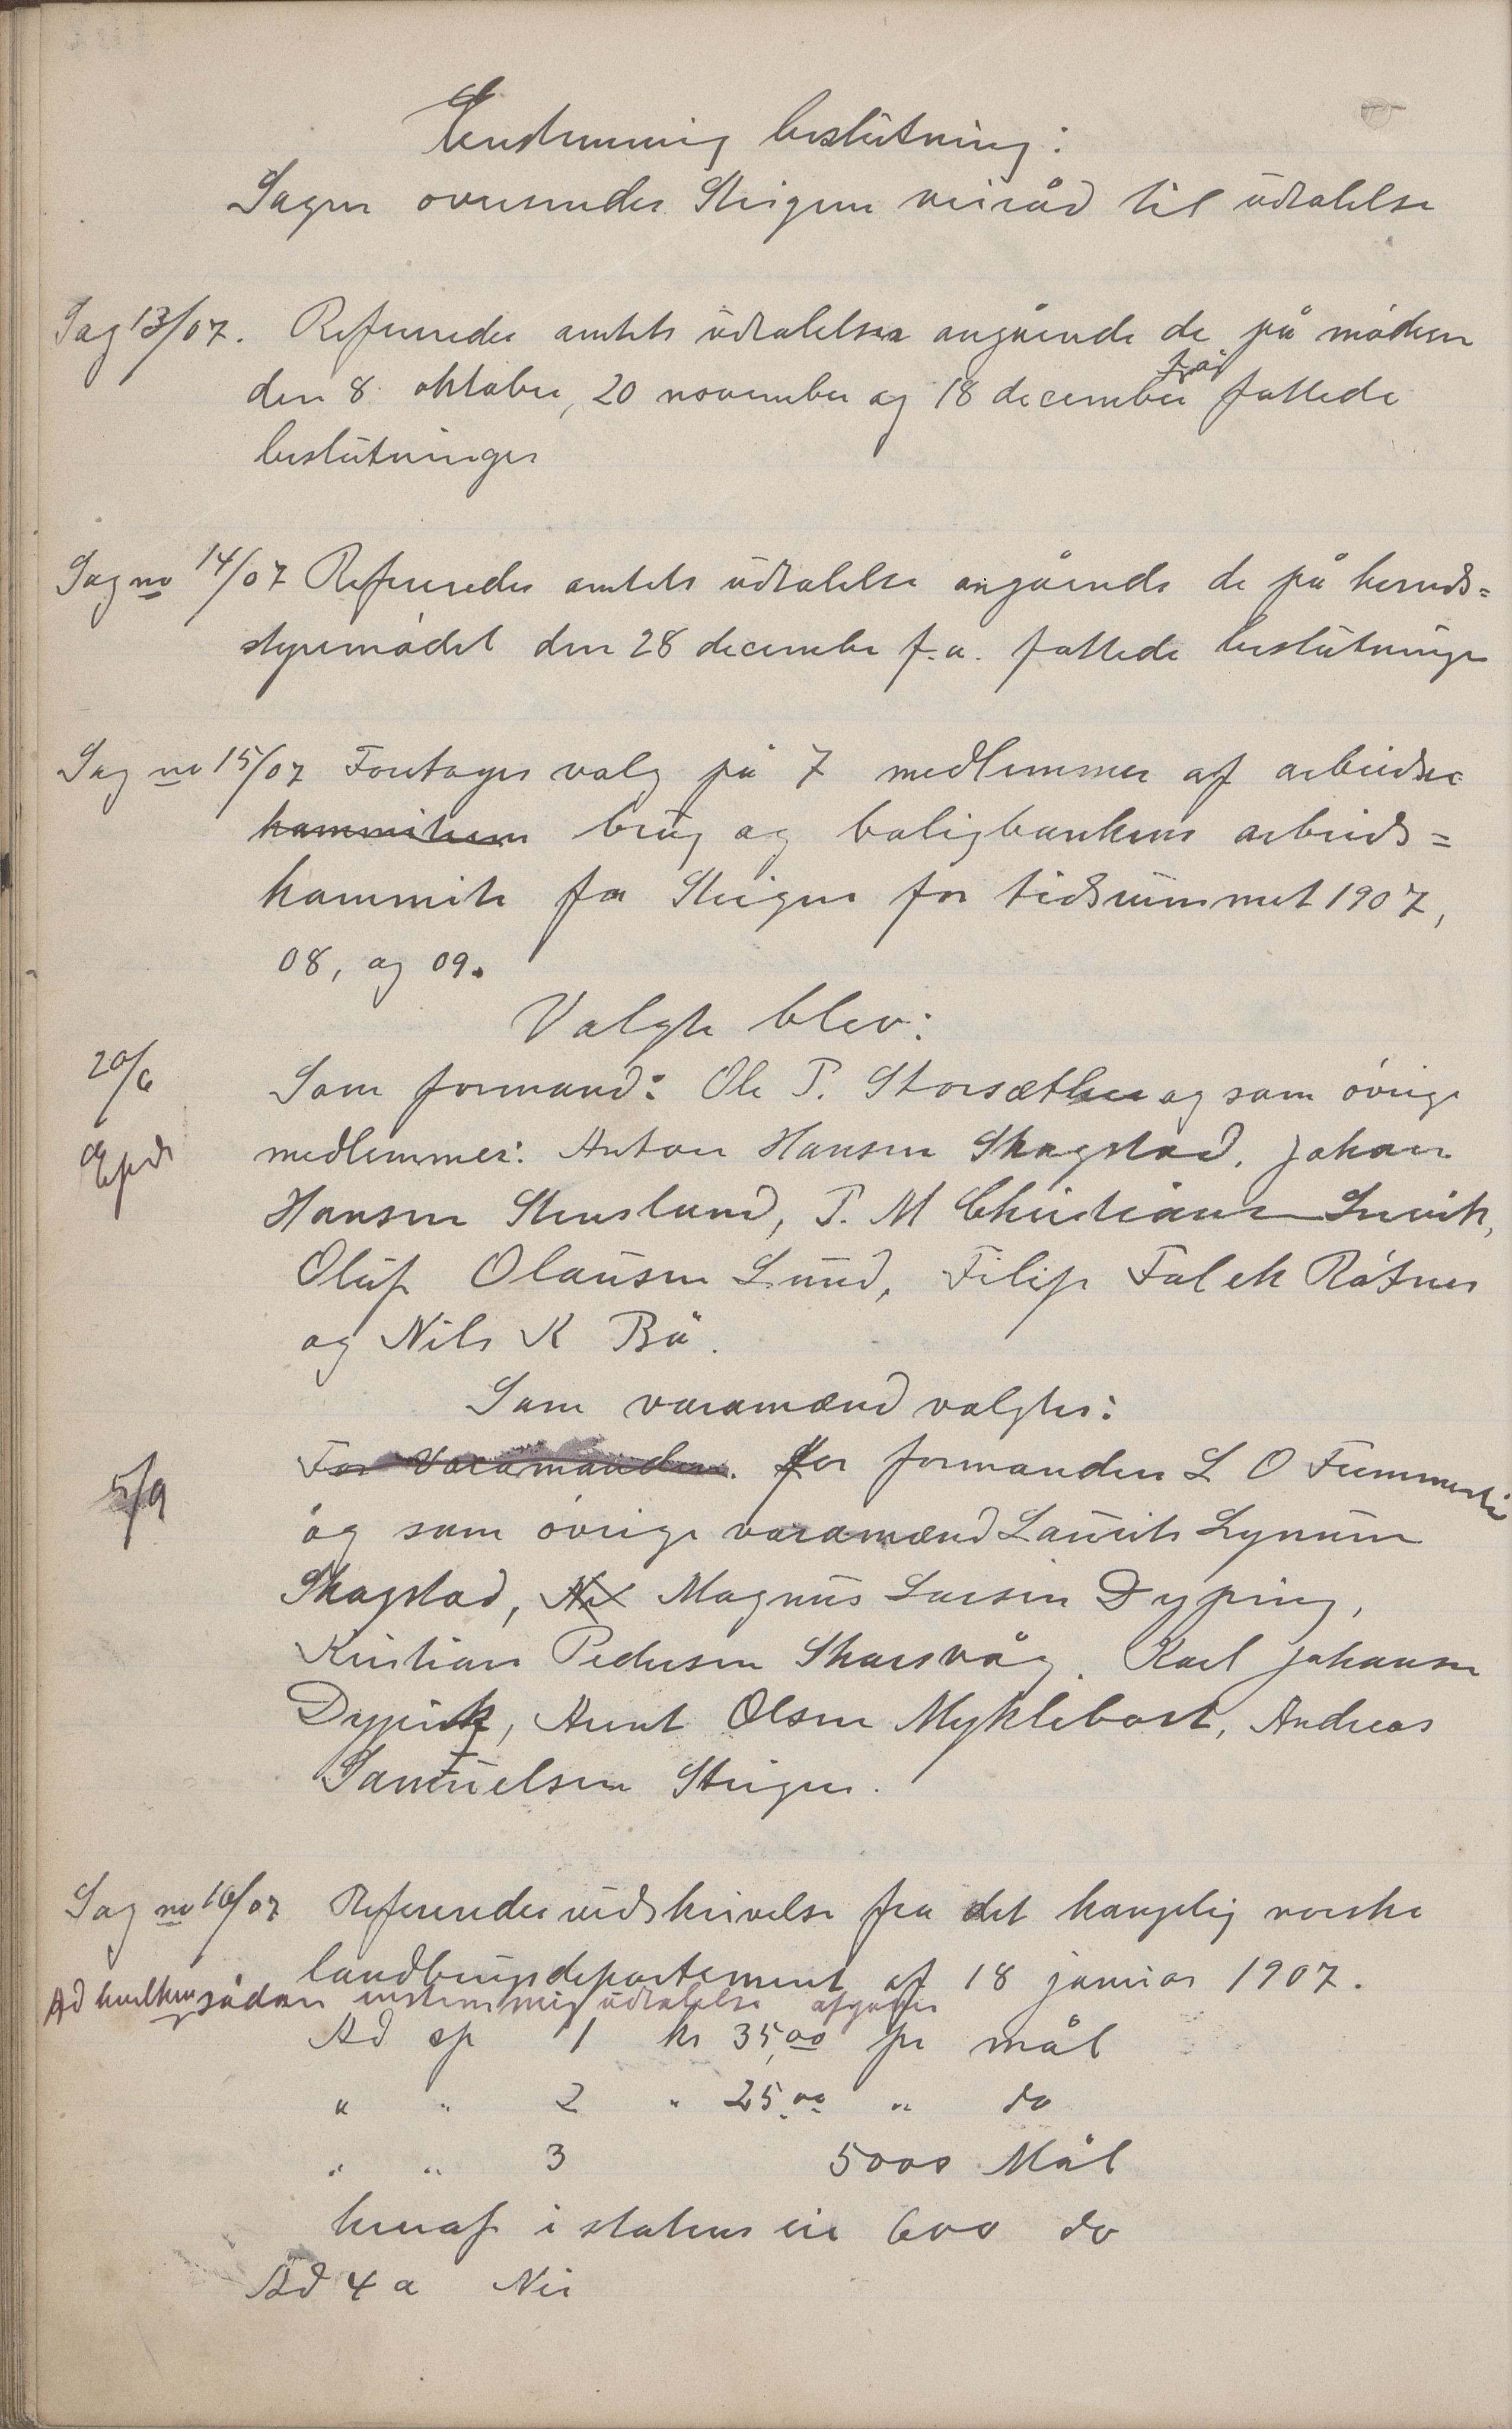 Enstemmig beslutning:
Sagen oversendes Steigens veiråd til udtalelse
Sag 13/07. Refereredes amtets udtalelser angående de på møderne
den 8 oktober, 20 november og 18 december f. år fattede
beslutninger
Sag no 14/07 Refereredes amtets udtalelse angående de på herreds=
styremødet den 28 december f.a. fattede beslutninger
Sag no 15/07 Foretages valg på 7 medlemmer af arbeider
kommiteen brug og boligbankens arbeids=
kommite for Steigen for tidsrummet 1907,
08, og 09.
Valgte blev:
20/6 Som formand: Ole P. Storsæther og som øvrige
Expd medlemmer: Anton Hansen Skagstad, Johan
Hansen Stenslund, P. M Christiansen Snevik,
Oluf Olausen Lund, Filip Falck Røtnes
og Nils K Bø.
Som varamænd valgtes:
For Varamanden. For formanden L O Fummesli
5/9 og som øvrige varamænd Laurits Lynum
Skagstad, Magnus Larsen Dyping,
Kristian Pedersen Skarsvåg, Karl Johansen
Dypvik, Arent Olsen Myklebost, Andreas
Samuelsen Steigen.
Sag no 16/07 Refereredes rundskrivelse fra det kongelig norske
landbrugsdepartement af 18 januar 1907.
Ad hvilken sådan enstemmig udtalelse afgaves
Ad sp 1 kr 35,00 pr mål
" " 2 " 25,00 " do
" " 3 5000 Mål
heraf i statens eie 600 do
Ad 4 a Nei